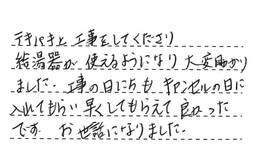 テキパキと工事をしてくださり
給湯器が使えるようになり大変助かり
ました。工事の日にちも キャンセルの日に
入れてもらい早くしてもらえて良かった
です。お世話になりました。